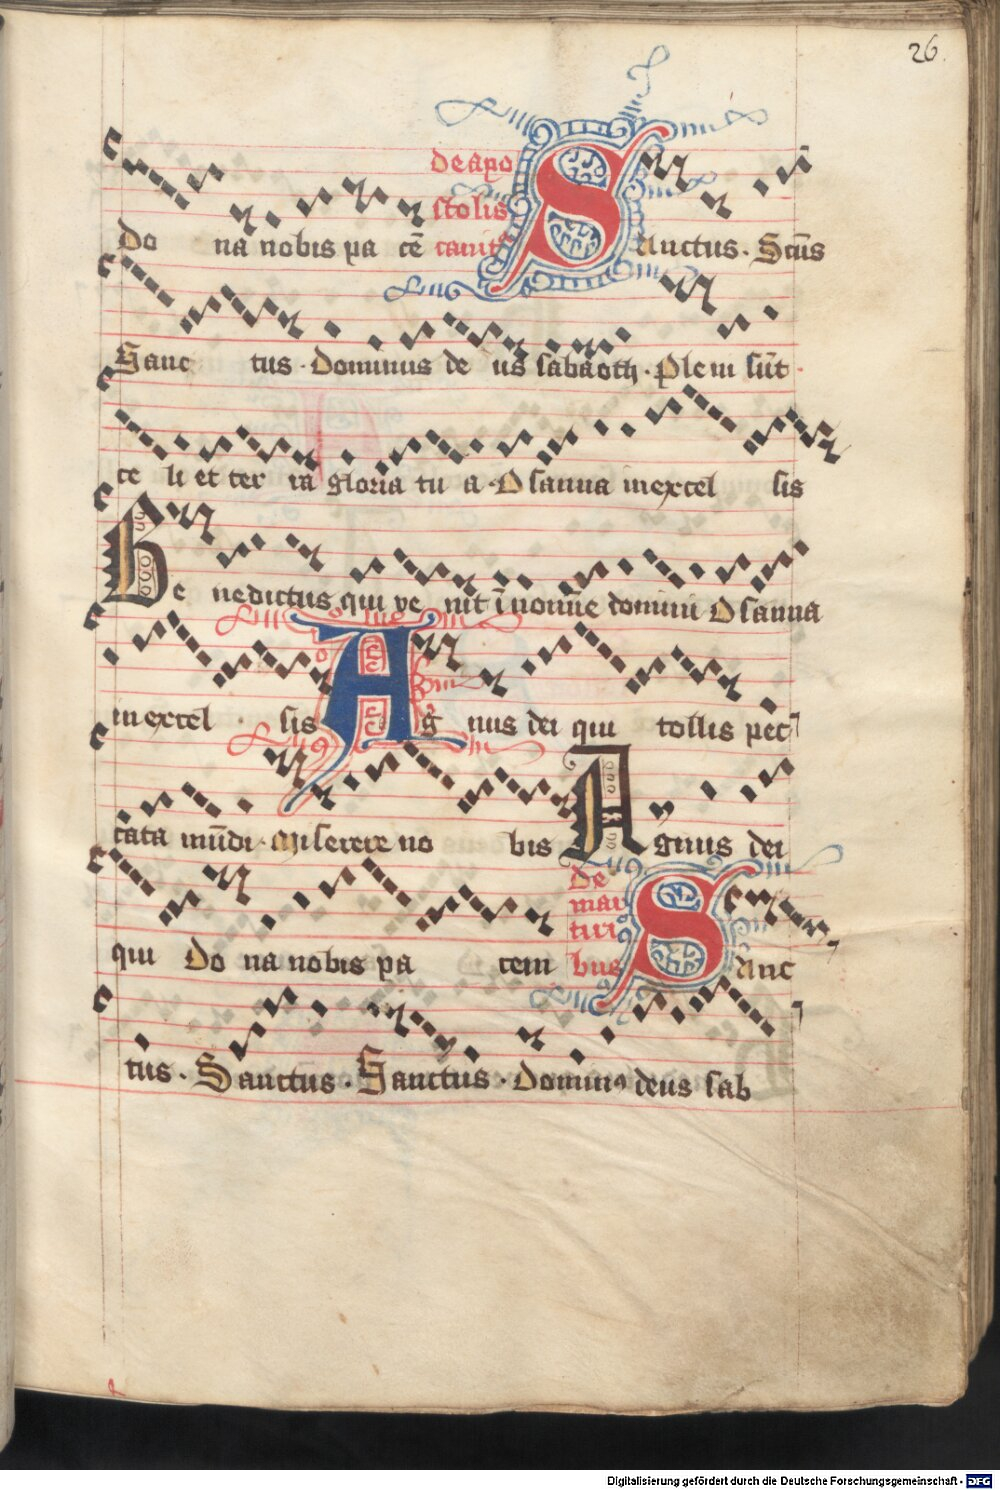 26
de apo
stolis
Do na nobis pa cē canit̄ Sanctus. Scūs
Sanc tus. Dominus de us sabaoth. Pleni sūt
ce li et ter ra gloria tu a. Osanna in excel sis
Be nedictus qui ve nit ī nomīe domini Osanna
in excel sis Ag nus dei qui tollis pec
cata mūdi. Miserere no bis Agnus dei
qui Do na nobis pa cem
de
mar
tiri
bus Sanc
tus. Sanctus. Sanctus. Dominꝰ deus sab
Digitalisierung gefördert durch die Deutsche Forschungsgemeinschaft - DFG